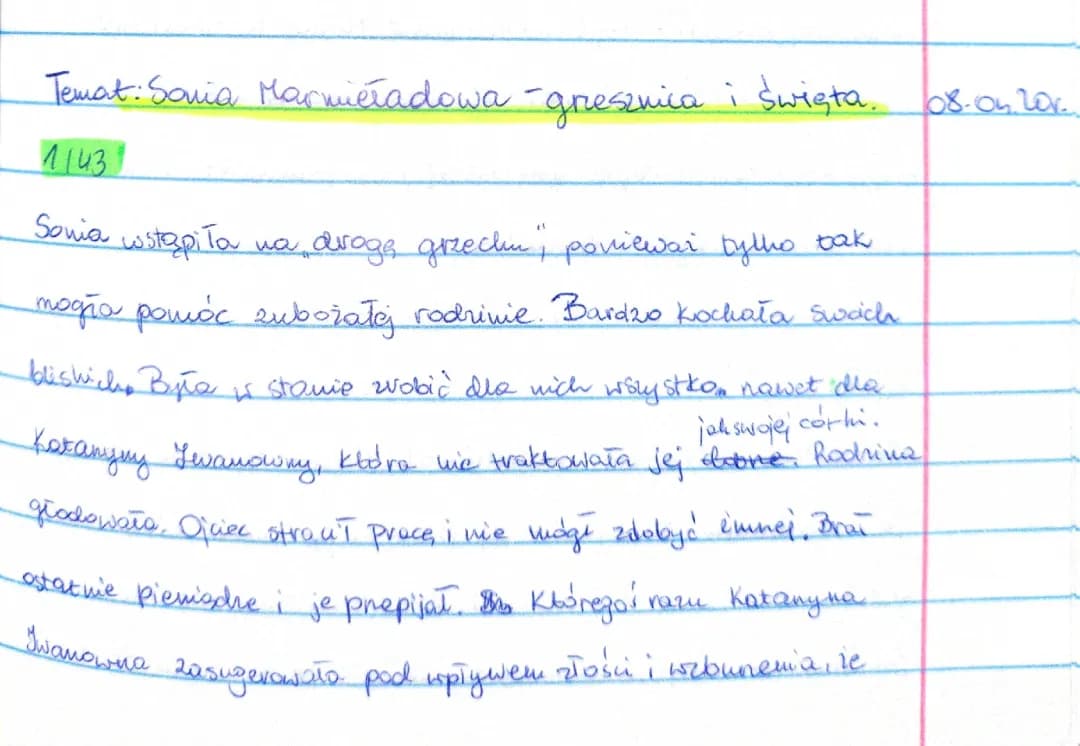 Temat: Sonia Marmieładowa - grzesznica i święta. 08.04.20r.
1/43
Sonia wstąpiła na „drogę grzechu", ponieważ tylko tak
mogła pomóc zubożałej rodzinie. Bardzo kochała swoich
bliskich. Była w stanie zrobić dla nich wszystko, nawet dla
jak swojej córki.
Katarzyny Iwanowny, która nie traktowała jej dobrze. Rodzina
głodowała. Ojciec stracił pracę i nie mógł zdobyć innej. Brał
ostatnie pieniądze i je przepijał. Któregoś razu Katarzyna
Iwanowna zasugerowała pod wpływem złości i wzburzenia, że